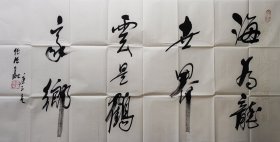 海为龙
世界
雲是鶴
家鄉